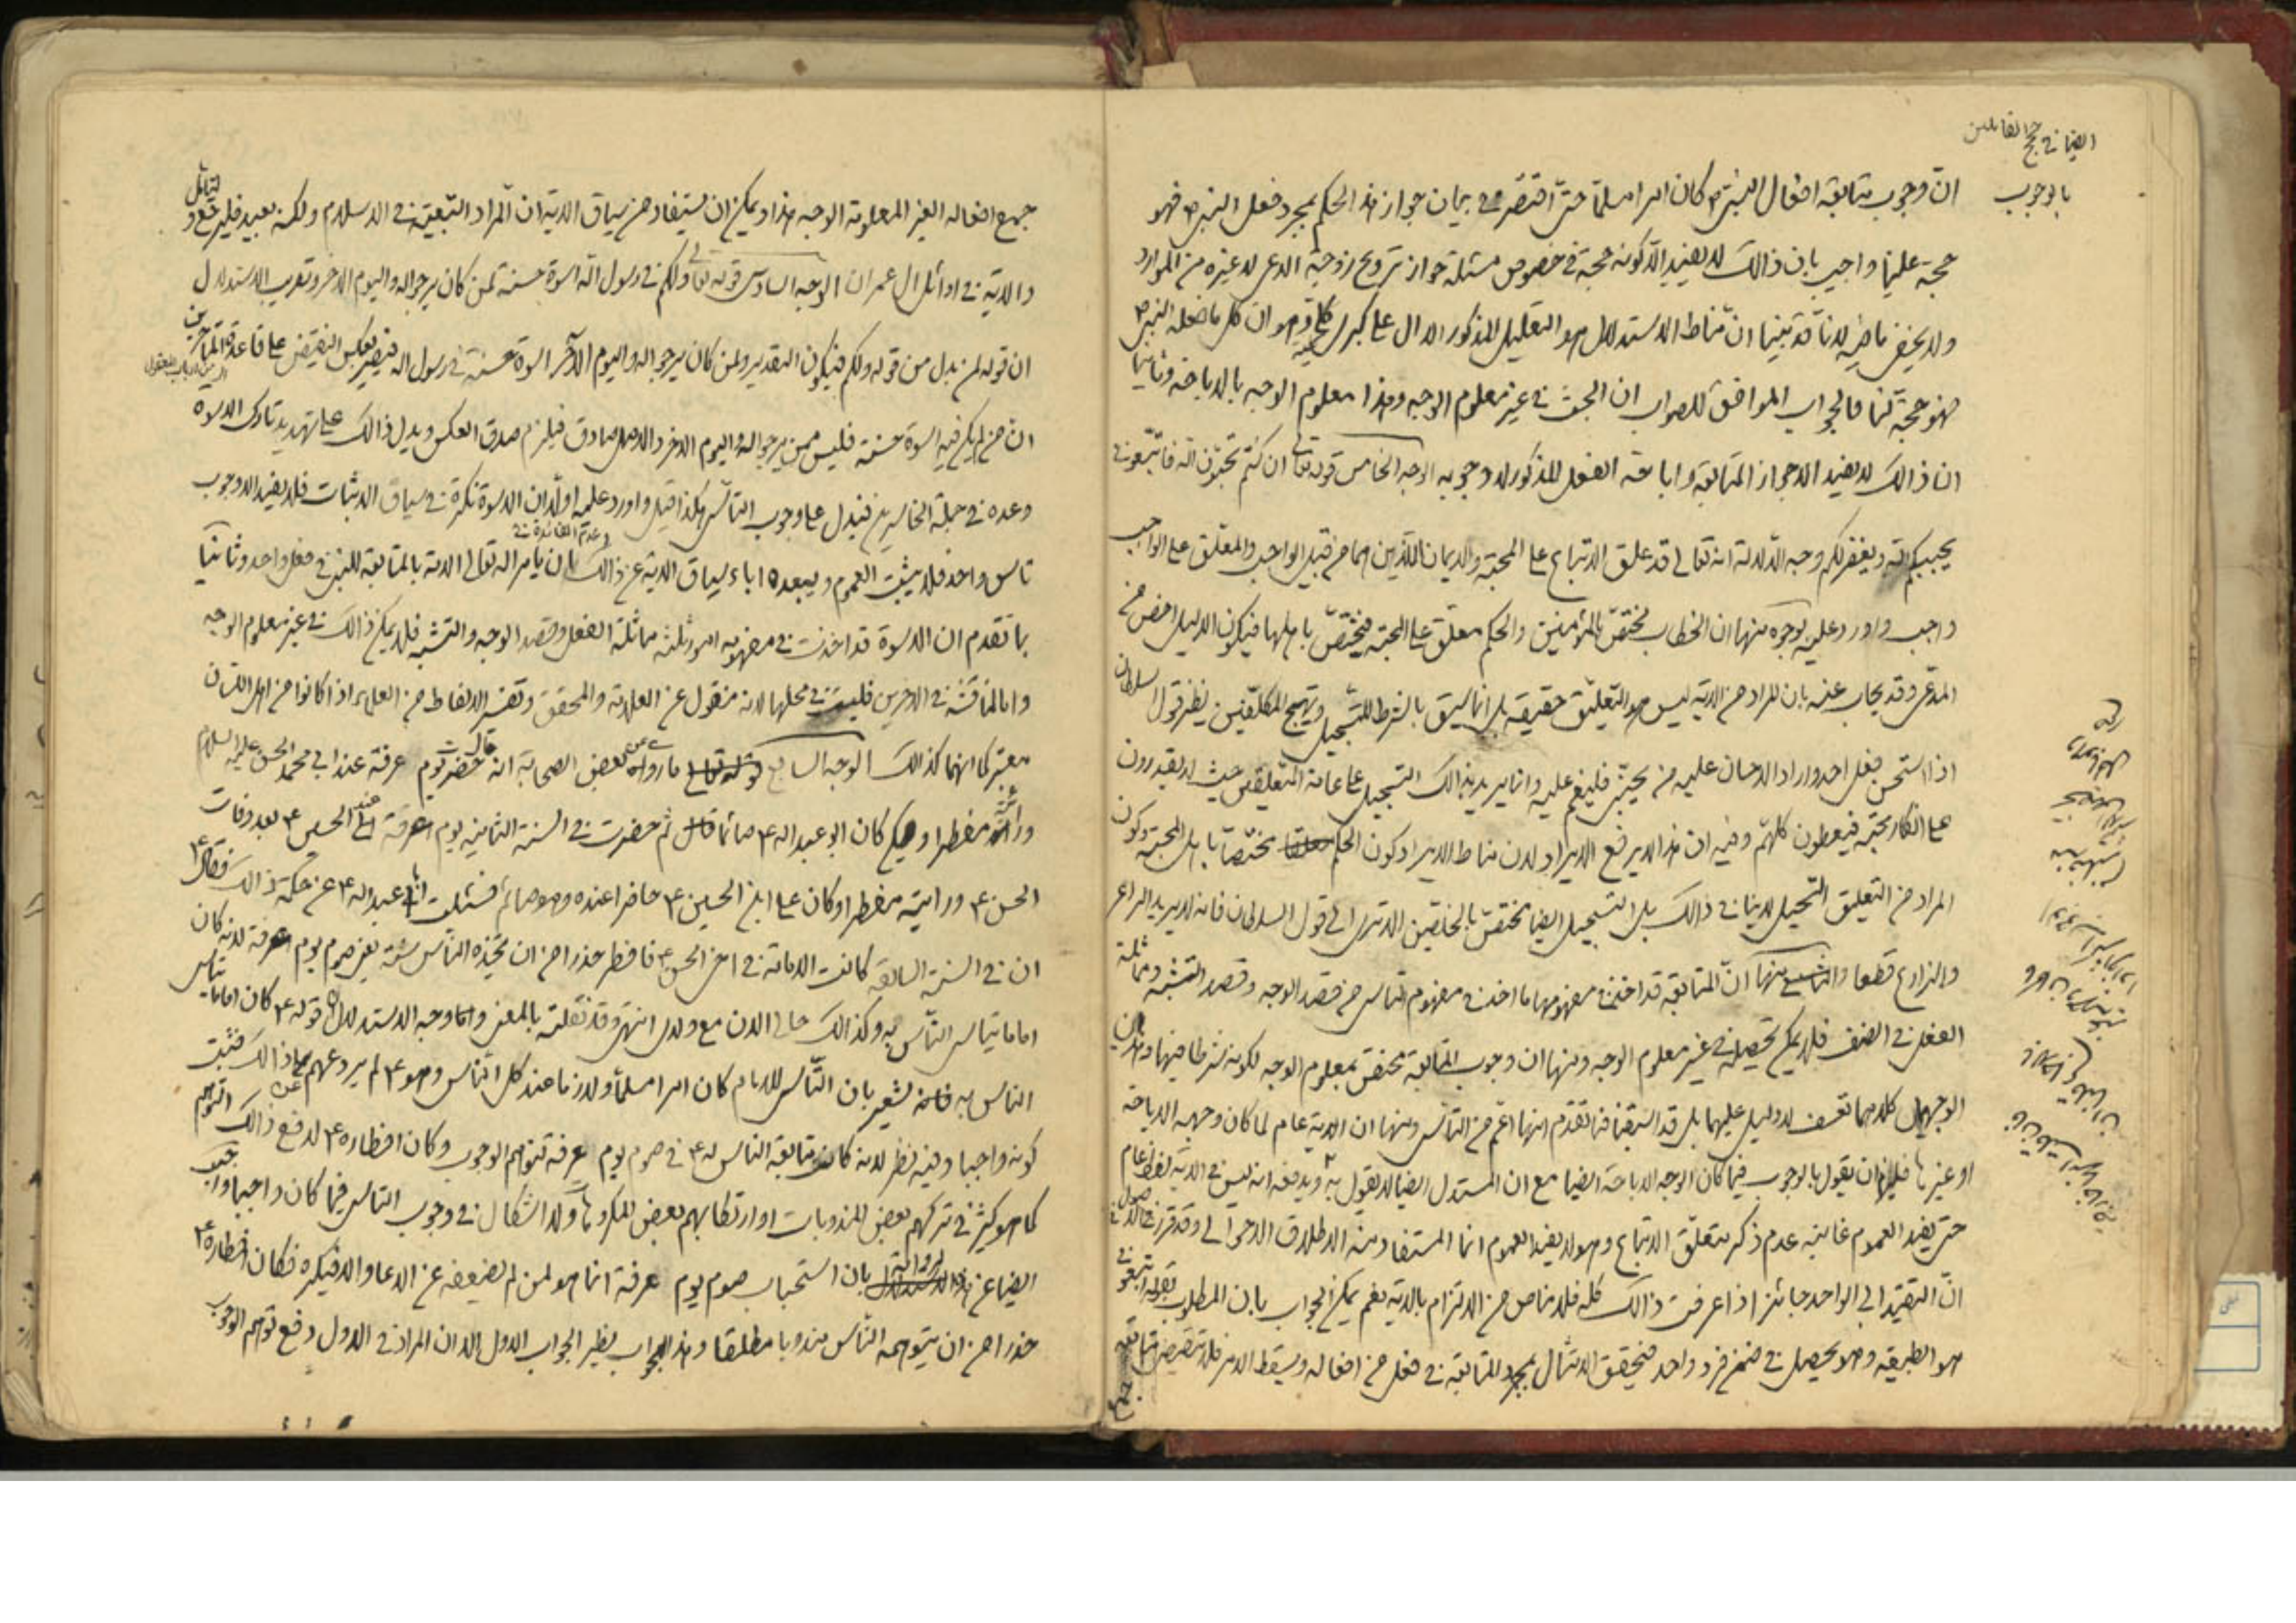 ايضا في حجج القائلين
بالوجوب
ان وجوب متابعة افعال النبي ص كان امرا مسلما حتى اقتصر في بيان جواز هذا الحكم بمجرد فعل النبي ص فهو
حجة علينا واجيب بان ذالك لا يفيد الا كونه حجة في خصوص مسئلة جواز تزويج زوجة الدعي لا غيره من الموارد
ولا يخفى ما فيه لانا قد بينا ان مناط الاستدلال هو التعليل المذكور الدال على كبرى كلية وهو ان كل ما فعله النبي ص
فهو حجة لنا فالجواب الموافق للصواب ان البحث في غير معلوم الوجه وهذا معلوم الوجه بالاباحة وثانيا
ان ذالك لا يفيد الا جواز المتابعة واباحة الفعل المذكور لا وجوبه الوجه الخامس قوله تعالى ان كنتم تحبون الله فاتبعوني
يحببكم الله ويغفر لكم وجه الدلالة انه تعالى قد علق الاتباع على المحبة والايمان اللذين هما من قبيل الواجب والمعلق على الواجب
واجب واورد عليه بوجوه منها ان الخطاب مختص بالمؤمنين والحكم معلق على المحبة فيختص باهلها فيكون الدليل اخص من
المدعى وقد يجاب عنه بان المراد من الاية ليس هو التعليق حقيقة بل انما سيق بالشرط للتسجيل وتهييج المكلفين نظير قول السلطان
اذا استحسن فعل احد واراد الاحسان عليه من يحبني فلينعم عليه وانما يريد بذالك التسجيل على عامة المتعلقين حيث لا يقدرون
على انكار محبته فيعطون كلهم وفيه ان هذا لا يرفع الايراد لان مناط الايراد كون الحكم مختصا باهل المحبة وكون
المراد من التعليق التسجيل لا ينافي ذالك بل التسجيل ايضا مختص بالخلقين الا ترى الى قول السلطان فانه لا يريد الراعي
والزارع قطعا ومنها ان المتابعة قد اخذ في مفهومها ما اخذ في مفهوم التاسي من قصد الوجه وقصد التشبه ومماثلة
الفعل في الصنف فلا يمكن تحصيله في غير معلوم الوجه ومنها ان وجوب المتابعة مختص بمعلوم الوجه لكونه شرطا فيها وهذان
الوجهان كلاهما تعسف لا دليل عليهما بل قد اسبقنا فيما تقدم انها اعم من التاسي ومنها ان الاية عام لما كان وجهه الاباحة
او غيرها فيلزم ان يقول بالوجوب فيما كان الوجه الاباحة ايضا مع ان المستدل ايضا لا يقول به ويدفعه انه ليس في الاية لفظ عام
حتى يفيد العموم غايته عدم ذكر متعلق الاتباع وهو لا يفيد العموم انما المستفاد منه الاطلاق الاحوالي وقد قرر في الاصول
ان التقييد الى الواحد جائز اذا عرفت ذالك كله فلا مناص من الالتزام بالاية نعم يمكن الجواب بان المطلوب بقوله اتبعوني
هو الطبيعة وهو يحصل في ضمن فرد واحد فيتحقق الامتثال بمجرد المتابعة في فعل من افعاله ويسقط الامر فلا تقتضي متابعة
جميع
جميع افعاله الغير المعلومة الوجه هذا ويمكن ان يستفاد من سياق الاية ان المراد التبعية في الاسلام ولكنه بعيد فليرجع و
ليتأمل
والاية في اوائل ال عمران الوجه السادس قوله تعالى ولكم في رسول الله اسوة حسنة لمن كان يرجو الله واليوم الاخر وتقريب الاستدلال
ان قوله لمن بدل من قوله ولكم فيكون التقدير ولمن كان يرجو الله واليوم الاخر اسوة حسنة في رسول الله فيصير بعكس النقيض على قاعدة المتاخرين
ان من لم يكن فيه اسوة حسنة فليس ممن يرجو الله واليوم الاخر والاصل صادق فيلزم صدق العكس ويدل ذالك على تهديد تارك الاسوة
وعده في جملة الخاسرين فيدل على وجوب التاسي هكذا قيل واورد عليه اولا ان الاسوة نكرة في سياق الاثبات فلا يفيد الا وجوب
تاس واحد فلا يثبت العموم ويبعده اباء سياق الاية عن ذالك وعدم الفائدة في ان يامر الله تعالى الامة بالمتابعة للنبي في فعل واحد وثانيا
بما تقدم ان الاسوة قد اخذت في مفهومه امور ثلثة مماثلة الفعل وقصد الوجه والتشبه فلا يمكن ذالك في غير معلوم الوجه
واما المناقشة في الاخرين فليست في محلها لانه منقول عن العلامة والمحقق وتفسير الالفاظ من العلماء اذا كانوا من اهل اللسان
معتبر كما انهما كذالك الوجه السابع ما رواه بعض الصحابة انه قال حضرت يوم عرفة عند ابي محمد الحسن عليه السلام
ورأيته مفطرا وكان ابو عبد الله ع صائما ثم حضرت في السنة الثانية يوم عرفة عند الحسين ع بعد وفات
الحسن ع ورايته مفطرا وكان علي ابن الحسين ع حاضرا عنده وهو صائم فسئلت ابا عبد الله ع عن حكمة ذالك فقال ع
ان في السنة السابقة كانت الامامة في اخي الحسن ع فافطر حذرا من ان يتخذه الناس سنة بغير صوم يوم عرفة لانه كان
اماما يتاسى الناس به وكذالك حالي الان مع ولدي انتهى وقد نقلته بالمعنى واما وجه الاستدلال قوله ع كان اماما يتاسى
الناس به فانه يشعر بان التاسي للامام كان امرا مسلما ولازما عند كل الناس وهو ع لم يردعهم عن ذالك فثبت
كونه واجبا وفيه نظر لانه كان متابعة الناس له ع في صوم يوم عرفة لتوهم الوجوب وكان افطاره ع لدفع ذالك التوهم
كما هو كثير في تركهم بعض المندوبات او ارتكابهم بعض المكروهات ولا اشكال في وجوب التاسي فيما كان واجبا واجيب
ايضا عن بان استحباب صوم يوم عرفة انما هو لمن لم يضعفه عن الدعاء والا فيكره فكان افطاره ع
حذرا من ان يتوهمه الناس مندوبا مطلقا وهذا الجواب نظير الجواب الاول الا ان المراد في الاول دفع توهم الوجوب